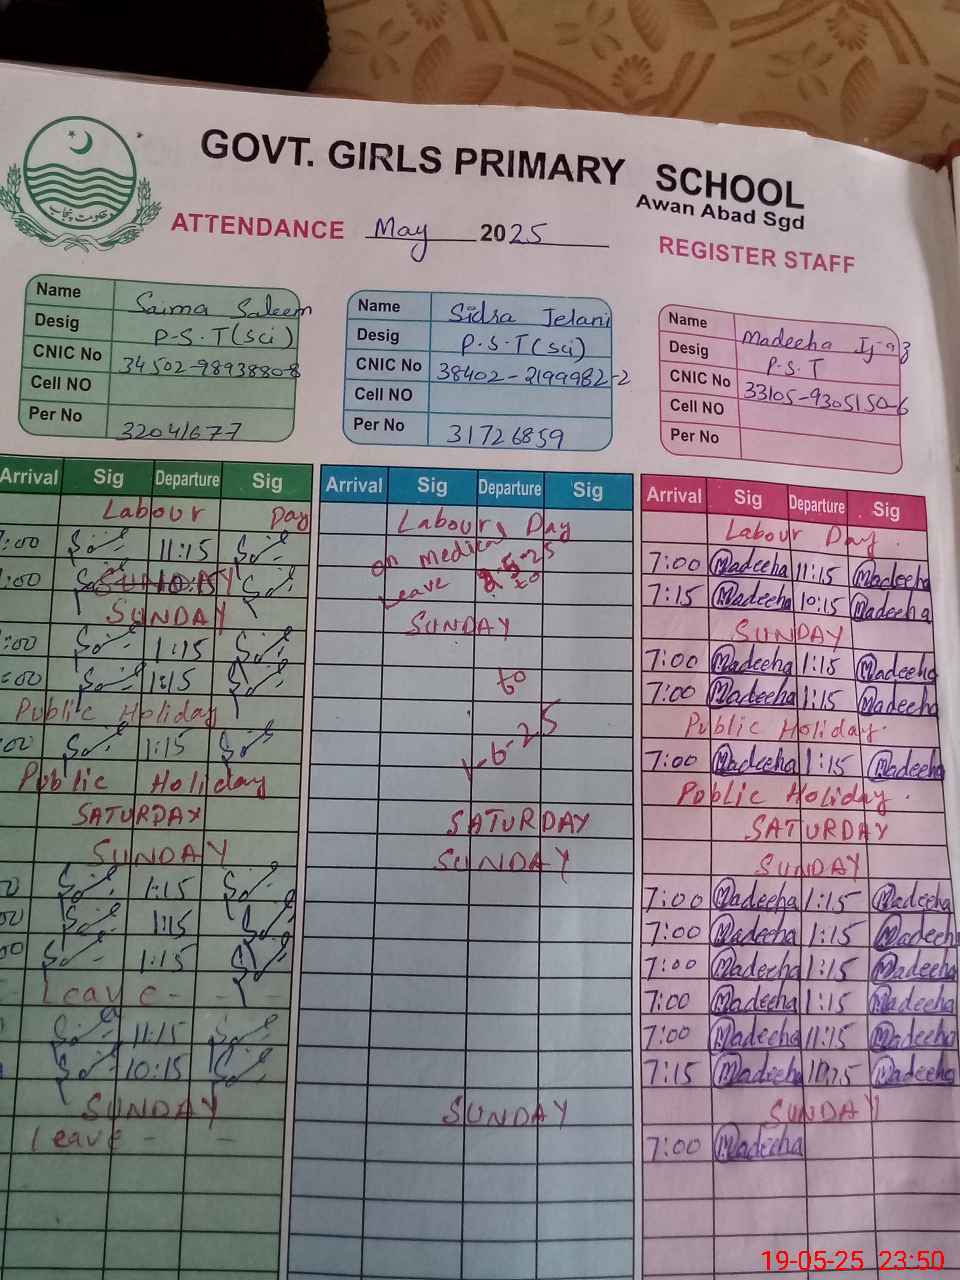 GOVT. GIRLS PRIMARY SCHOOL
Awan Abad Sgd
حکومت پنجاب
ATTENDANCE May 2025
REGISTER STAFF
Name Saima Saleem
Desig P.S.T (Sci)
CNIC No 34502-9893880-8
Cell NO
Per No 32041677
Name Sidra Jelani
Desig P.S.T (Sci)
CNIC No 38402-2199982-2
Cell NO
Per No 31726859
Name Madeeha Ijaz
Desig P.S.T
CNIC No 33105-9305150-6
Cell NO
Per No
Arrival Sig Departure Sig
Labour Day
7:00 11:15
:00 SUNDAY 10:15
SUNDAY
:00 1:15
:00 1:15
Public Holiday
00 1:15
Public Holiday
SATURDAY
SUNDAY
1:15
00 1:15
00 1:15
Leave - - -
11:15
10:15
SUNDAY
Leave - -
Arrival Sig Departure Sig
Labours Day
on medical 2-5-25
Leave to
SUNDAY
to
1-6-25
SATURDAY
SUNDAY
SUNDAY
Arrival Sig Departure Sig
Labour Day.
7:00 Madeeha 11:15 Madeeha
7:15 Madeeha 10:15 Madeeha
SUNDAY
7:00 Madeeha 1:15 Madeeha
7:00 Madeeha 1:15 Madeeha
Public Holiday.
7:00 Madeeha 1:15 Madeeha
Public Holiday.
SATURDAY
SUNDAY
7:00 Madeeha 1:15 Madeeha
7:00 Madeeha 1:15 Madeeha
7:00 Madeeha 1:15 Madeeha
7:00 Madeeha 1:15 Madeeha
7:00 Madeeha 11:15 Madeeha
7:15 Madeeha 10:15 Madeeha
SUNDAY
7:00 Madeeha
19-05-25 23:50